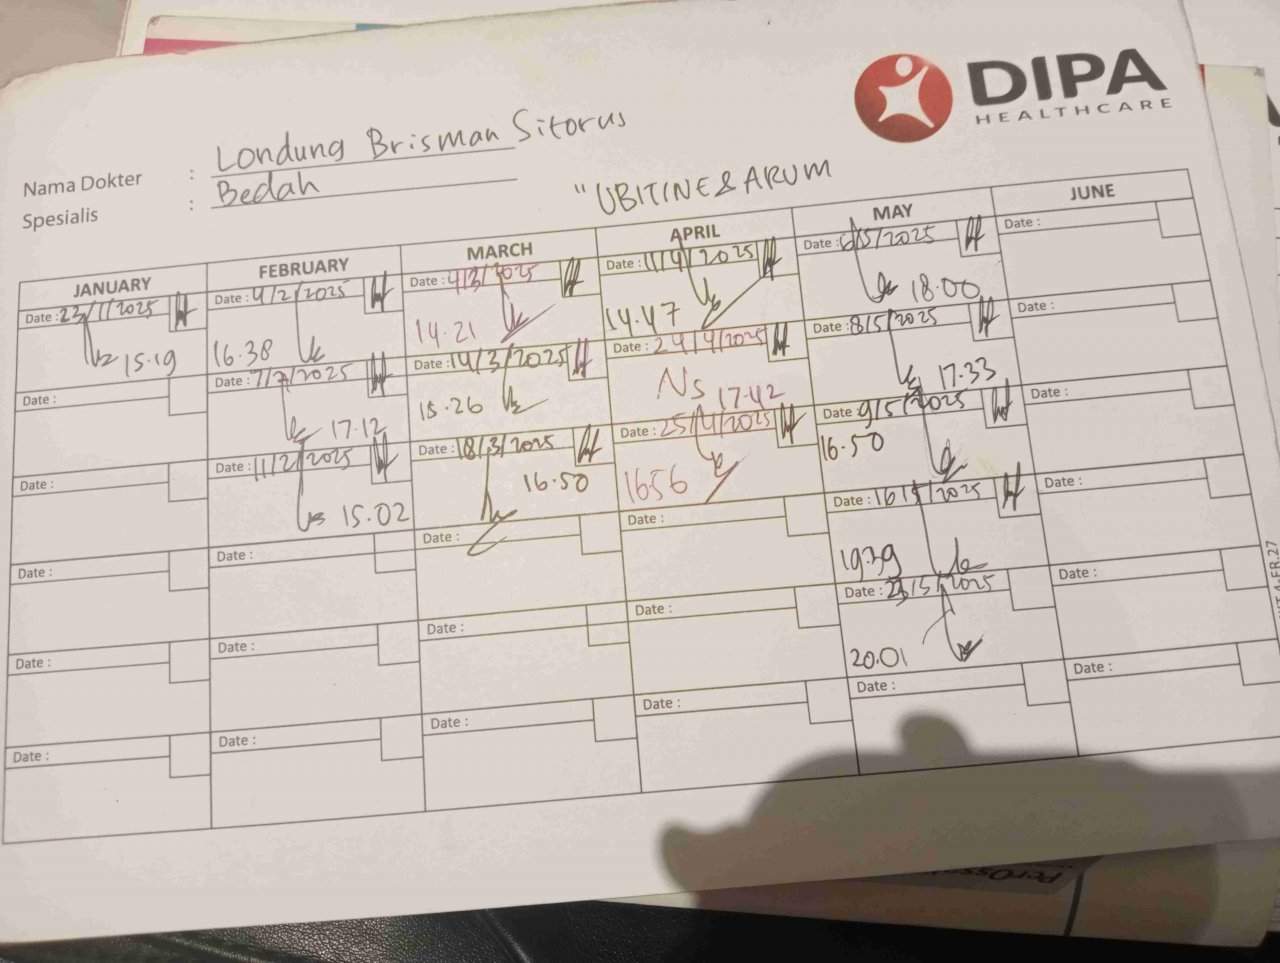 DIPA
HEALTHCARE
Nama Dokter : Londung Brisman Sitorus
Spesialis : Bedah
"UBITINE & ARUM
JANUARY
Date : 23/1/2025
15.19
Date :
Date :
Date :
Date :
Date :
FEBRUARY
Date : 4/2/2025
16.38
Date : 7/7/2025
17.12
Date : 11/2/2025
15.02
Date :
Date :
Date :
MARCH
Date : 4/3/2025
14.21
Date : 14/3/2025
15.26
Date : 18/3/2025
16.50
Date :
Date :
Date :
APRIL
Date : 11/4/2025
14.47
Date : 24/4/2025
Ns 17.42
Date : 25/4/2025
1656
Date :
Date :
Date :
MAY
Date : 6/5/2025
18.00
Date : 8/5/2025
17.33
Date : 9/5/2025
16.50
Date : 16/5/2025
Date : 23/5/2025
20.01
Date :
JUNE
Date :
Date :
Date :
Date :
Date :
Date :